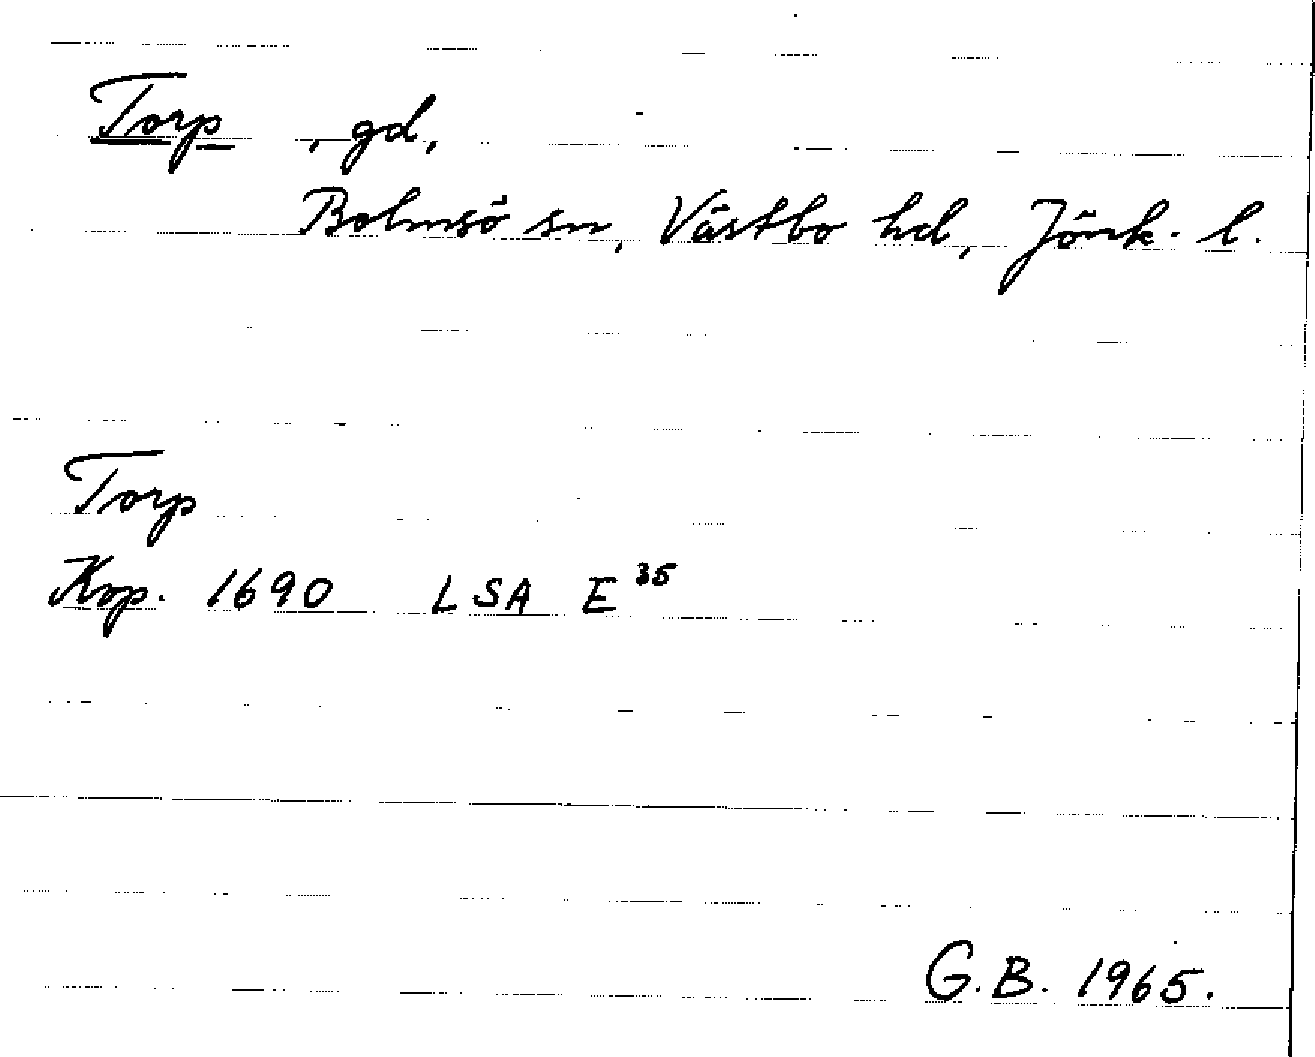 Torp, gd,
Bolmsö sn, Västbo hd, Jönk. l.
Torp
Kop. 1690 LSA E 35
G.B. 1965.